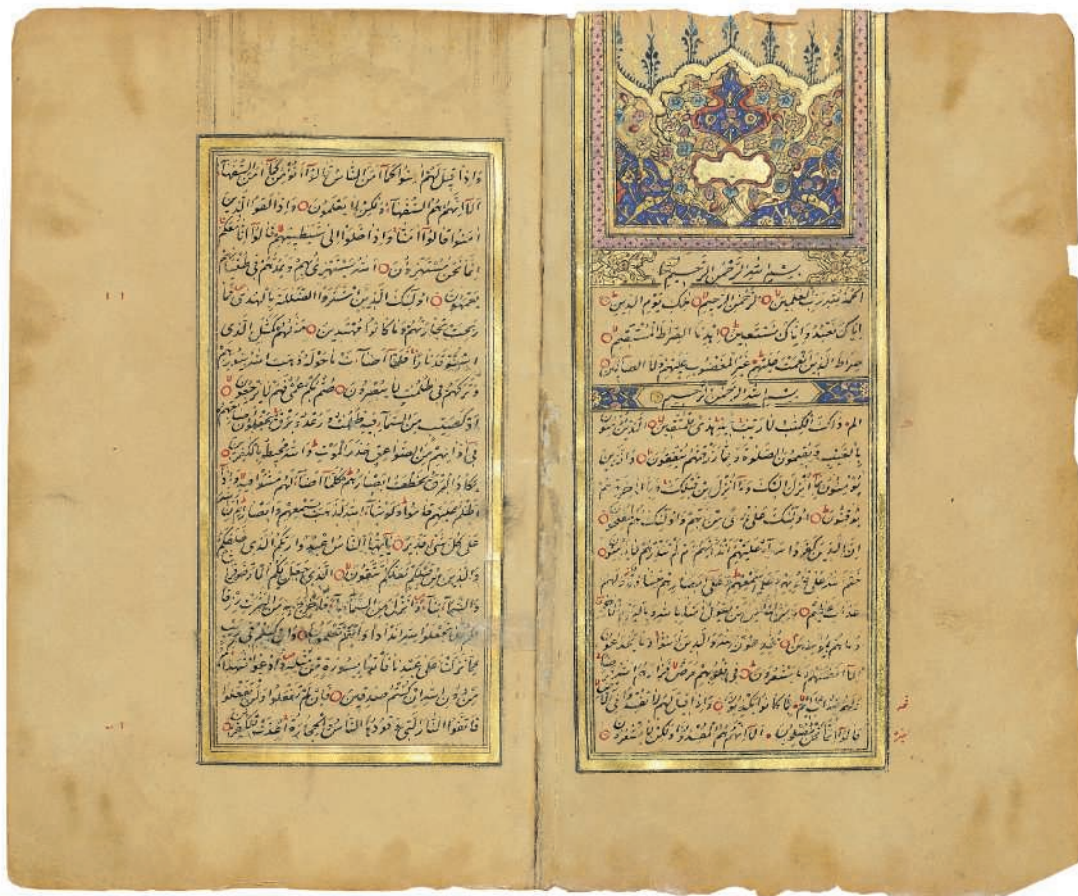 بسم الله الرحمن الرحيم
الحمد لله رب العلمين الرحمن الرحيم ملك يوم الدين
اياك نعبد واياك نستعين اهدنا الصراط المستقيم
صراط الذين انعمت عليهم غير المغضوب عليهم ولا الضالين
بسم الله الرحمن الرحيم
الم ذلك الكتب لا ريب فيه هدى للمتقين الذين يؤمنون
بالغيب ويقيمون الصلوة ومما رزقنهم ينفقون والذين
يؤمنون بما انزل اليك وما انزل من قبلك وبالاخرة هم
يوقنون اولئك على هدى من ربهم واولئك هم المفلحون
ان الذين كفروا سوآء عليهم ءانذرتهم ام لم تنذرهم لا يؤمنون
ختم الله على قلوبهم وعلى سمعهم وعلى ابصارهم غشاوة ولهم
عذاب عظيم ومن الناس من يقول امنا بالله وباليوم الاخر
وما هم بمؤمنين يخدعون الله والذين امنوا وما يخدعون
الا انفسهم وما يشعرون في قلوبهم مرض فزادهم الله مرضا
ولهم عذاب اليم بما كانوا يكذبون واذا قيل لهم لا تفسدوا في الارض
قالوا انما نحن مصلحون الا انهم هم المفسدون ولكن لا يشعرون
واذا قيل لهم امنوا كما امن الناس قالوا انؤمن كما امن السفهآء
الا انهم هم السفهآء ولكن لا يعلمون واذا لقوا الذين
امنوا قالوا امنا واذا خلوا الى شيطينهم قالوا انا معكم
انما نحن مستهزؤن الله يستهزئ بهم ويمدهم في طغيانهم
يعمهون اولئك الذين اشتروا الضللة بالهدى فما
ربحت تجارتهم وما كانوا مهتدين مثلهم كمثل الذى
استوقد نارا فلما اضاءت ما حوله ذهب الله بنورهم
وتركهم في ظلمت لا يبصرون صم بكم عمى فهم لا يرجعون
او كصيب من السمآء فيه ظلمت ورعد وبرق يجعلون اصابعهم
في آذانهم من الصواعق حذر الموت والله محيط بالكفرين
يكاد البرق يخطف ابصارهم كلما اضآء لهم مشوا فيه واذا
اظلم عليهم قاموا ولو شآء الله لذهب بسمعهم وابصارهم ان الله
على كل شئ قدير يايها الناس اعبدوا ربكم الذى خلقكم
والذين من قبلكم لعلكم تتقون الذى جعل لكم الارض فراشا
والسمآء بنآء وانزل من السمآء مآء فاخرج به من الثمرت رزقا
لكم فلا تجعلوا لله اندادا وانتم تعلمون وان كنتم في ريب
مما نزلنا على عبدنا فأتوا بسورة من مثله وادعوا شهدآءكم
من دون الله ان كنتم صدقين فان لم تفعلوا ولن تفعلوا
فاتقوا النار التى وقودها الناس والحجارة اعدت للكفرين